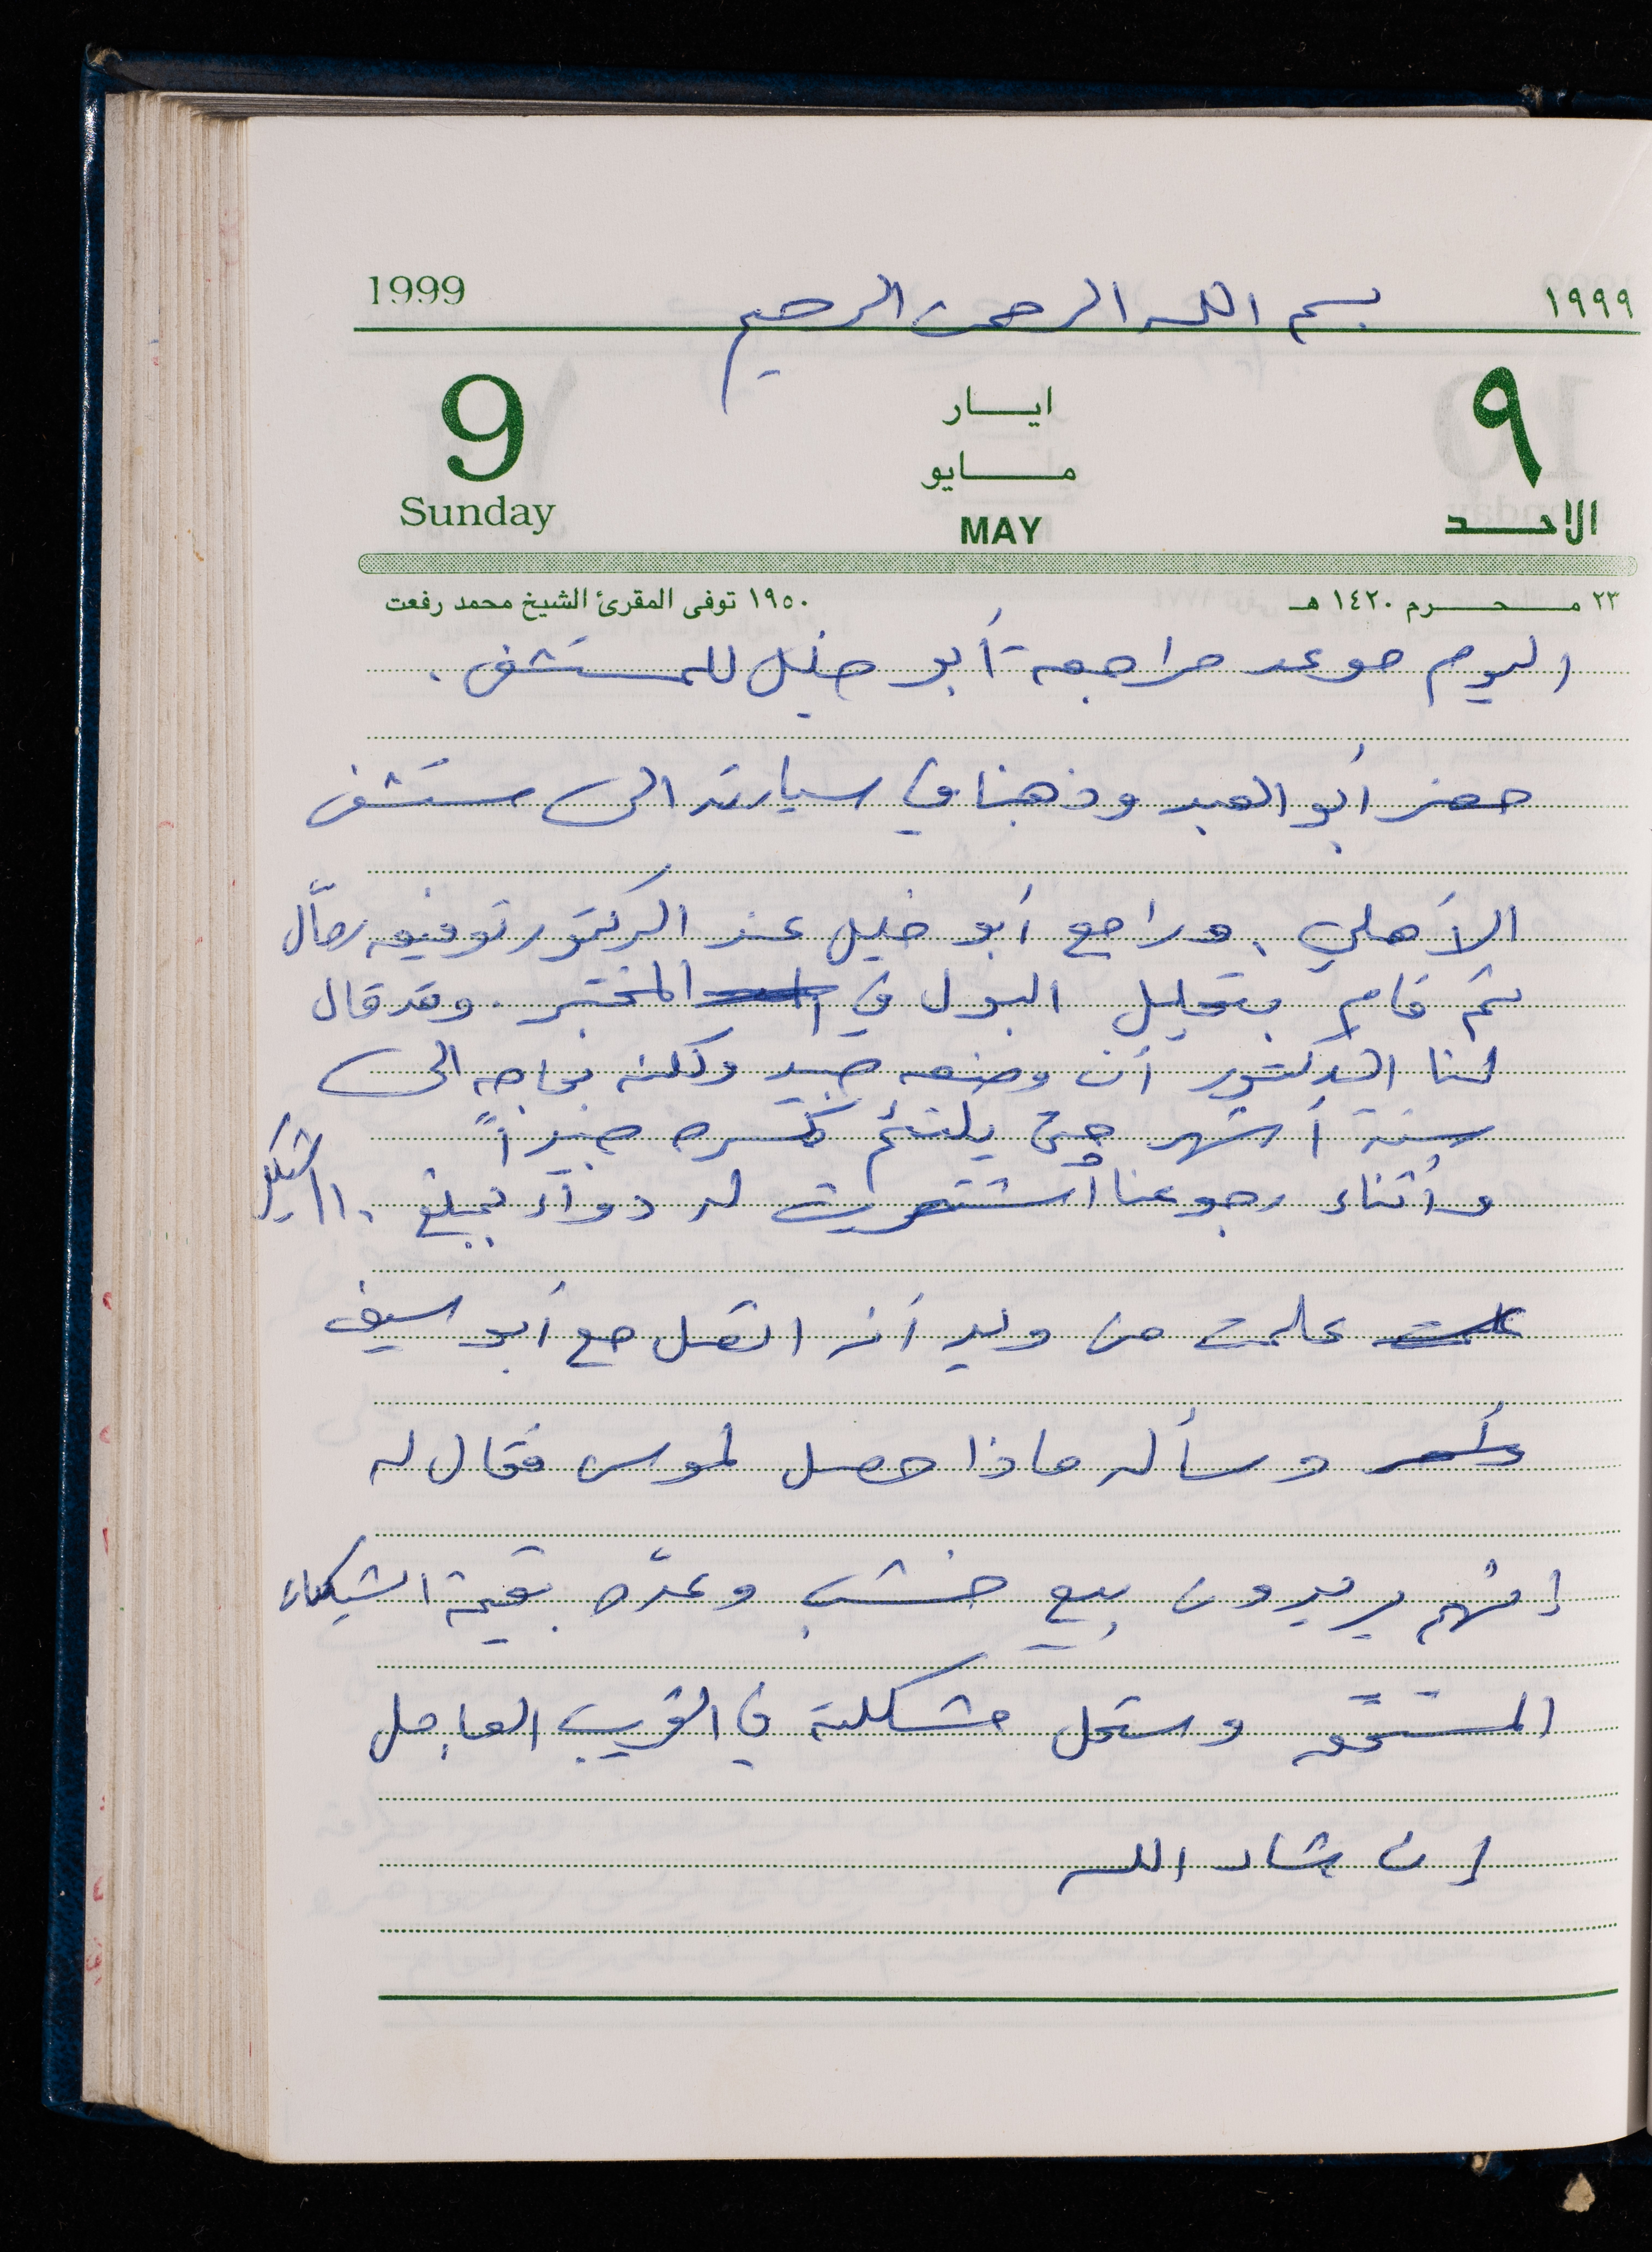 1999 بسم الله الرحمن الرحيم ١٩٩٩
9 ايار ٩
مايو
Sunday MAY الاحد
٢٣ محرم ١٤٢٠ هـ ١٩٥٠ توفى المقرئ الشيخ محمد رفعت
اليوم موعد مراجعة أبو خليل للمستشفى .
حضر أبو العبد وذهبنا في سيارته الى مستشفى
الأهلي . وراجع أبو خليل عند الدكتور توفيق رمّال
ثم قام بتحليل البول في المختبر . وقد قال
لنا الدكتور أن وضعه جيد ولكنه بحاجه الى
ستة أشهر حتى يلتئم كسره جيداً
وأثناء رجوعنا أشتريت له دواء بمبلغ ١١٠ شيكل
علمت من وليد أنه اتصل مع أبو سيف
وسأله ماذا حصل لموسى فقال له
إنهم يريدون بيع خشب وعدّه بقيمة الشيكات
المستحقه وستحل مشكلته في القريب العاجل
إن شاء الله